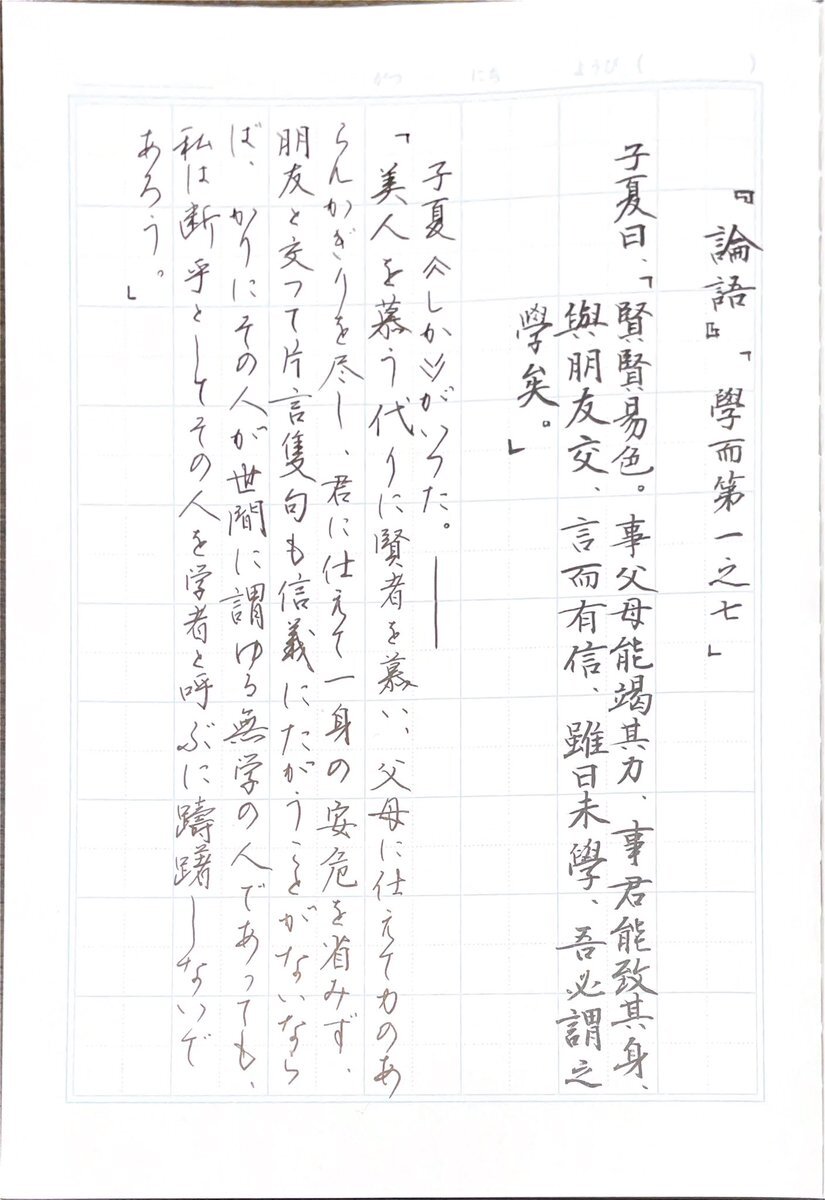 がつ　にち　ようび（　　）
『論語』「學而第一之七」
子夏曰、「賢賢易色。事父母能竭其力、事君能致其身、
與朋友交、言而有信、雖曰未學、吾必謂之
學矣。」
子夏《しか》がいった。――
「美人を慕う代りに賢者を慕い、父母に仕えて力のあ
らんかぎりを尽し、君に仕えて一身の安危を省みず、
朋友と交って片言隻句も信義にたがうことがないなら
ば、かりにその人が世間に謂ゆる無学の人であっても、
私は断乎としてその人を学者と呼ぶに躊躇しないで
あろう。」